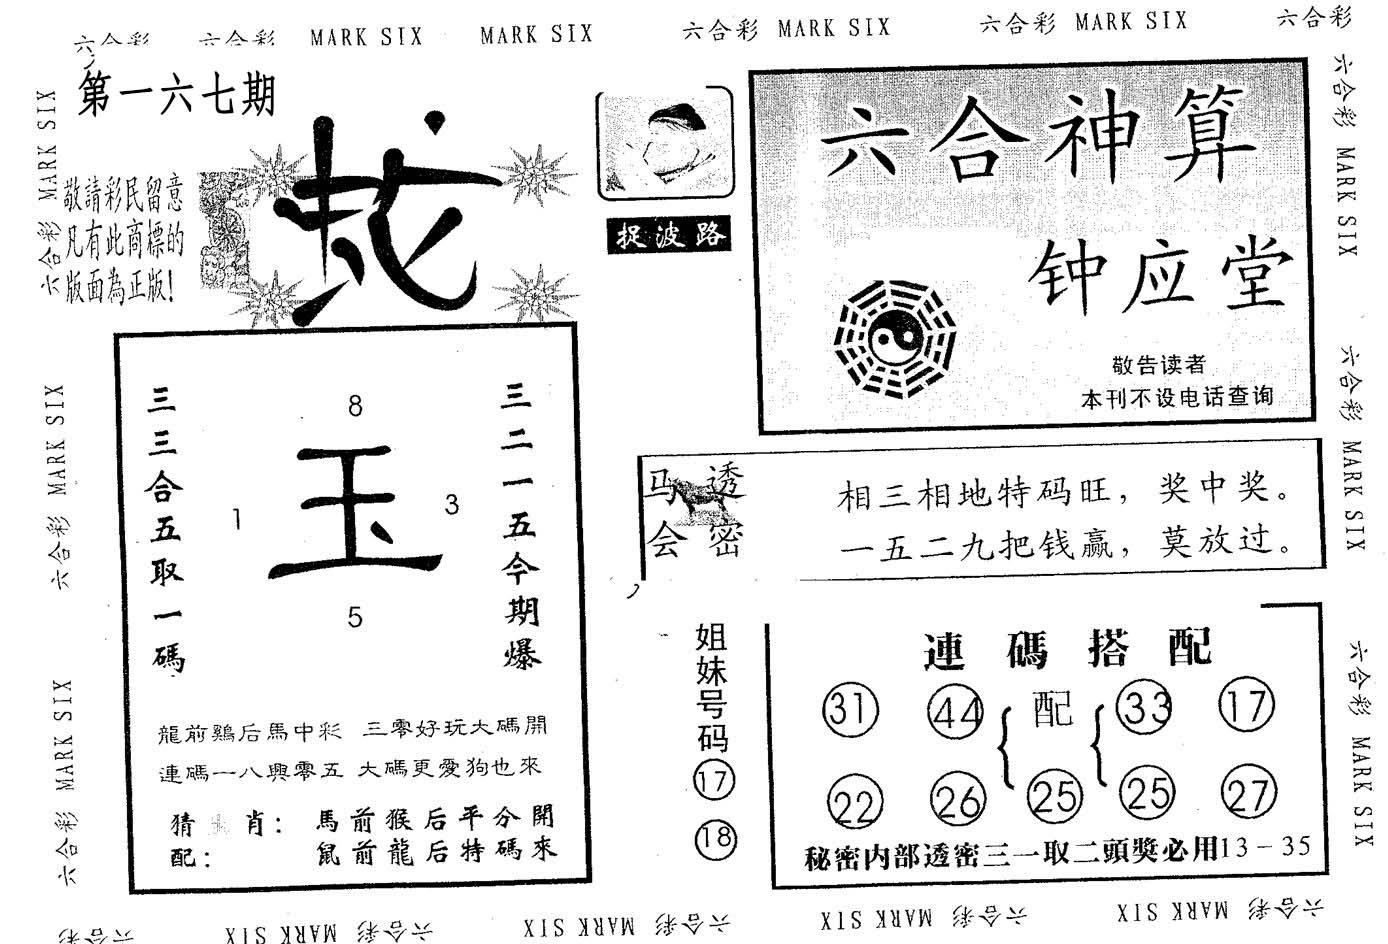 六合彩 六合彩 MARK SIX MARK SIX 六合彩 MARK SIX 六合彩 MARK SIX 六合彩
第一六七期
敬請彩民留意
凡有此商標的
版面為正版!
捉波路
六合神算
钟应堂
敬告读者
本刊不设电话查询
三三合五取一碼
8
1
玉
3
5
三二一五今期爆
龍前鷄后馬中彩 三零好玩大碼開
連碼一八興零五 大碼更愛狗也來
猜 肖: 馬前猴后平分開
配: 鼠前龍后特碼來
马会
透密
相三相地特码旺，奖中奖。
一五二九把钱赢，莫放过。
姐妹号码
17
18
連碼搭配
31 44 配 33 17
22 26 25 25 27
秘密内部透密三一取二頭獎必用13-35
六合彩 MARK SIX
六合彩 MARK SIX
六合彩 MARK SIX
六合彩 MARK SIX
六合彩 MARK SIX
六合彩 MARK SIX
六合彩 六合彩 MARK SIX 六合彩 MARK SIX 六合彩 MARK SIX 六合彩 MARK SIX